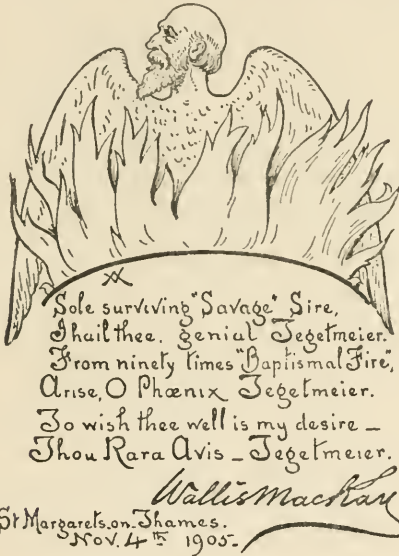 Sole surviving "Savage" Sire,
I hail thee, genial Tegetmeier.
From ninety times "Baptismal Fire",
Arise, O Phœnix Tegetmeier.
To wish thee well is my desire –
Thou Rara Avis – Tegetmeier.
Wallis Mackay
St Margarets-on-Thames.
Nov. 4th 1905.